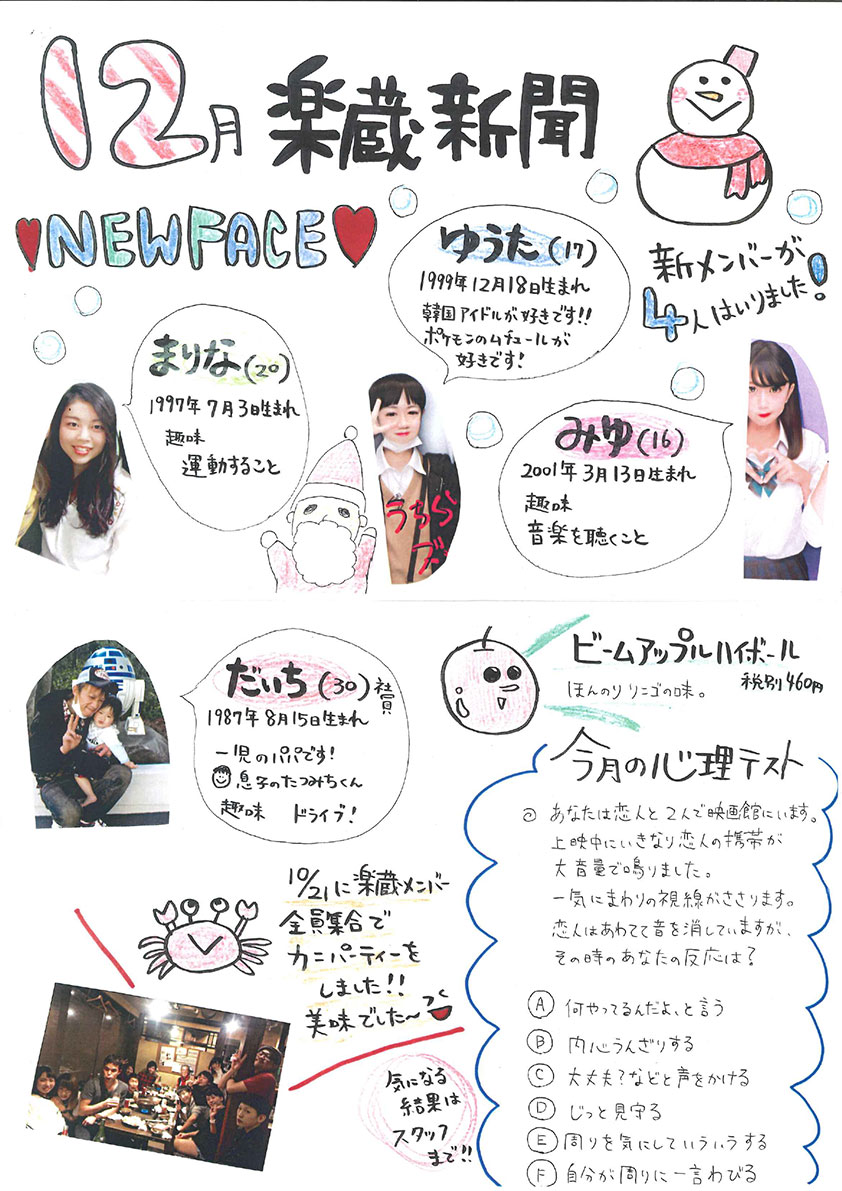 12月 楽蔵新聞
NEW FACE
新メンバーが
4人はいりました!
ゆうた(17)
1999年12月18日生まれ
韓国アイドルが好きです!!
ポケモンのムチュールが
好きです!
まりな(20)
1997年7月3日生まれ
趣味
運動すること
みゆ(16)
2001年3月13日生まれ
趣味
音楽を聴くこと
うちら
だいち(30)社員
1987年8月15日生まれ
一児のパパです!
息子のたつみちくん
趣味 ドライブ!
ビームアップルハイボール
ほんのりリンゴの味。 税別460円
今月の心理テスト
◎ あなたは恋人と2人で映画館にいます。
上映中にいきなり恋人の携帯が
大音量で鳴りました。
一気にまわりの視線がささります。
恋人はあわてて音を消していますが、
その時のあなたの反応は?
Ⓐ 何やってるんだよ、と言う
Ⓑ 内心うんざりする
Ⓒ 大丈夫?などと声をかける
Ⓓ じっと見守る
Ⓔ 周りを気にしていらいらする
Ⓕ 自分が周りに一言わびる
10/21に楽蔵メンバー
全員集合で
カニパーティーを
しました!!
美味でした〜
気になる
結果は
スタッフ
まで!!